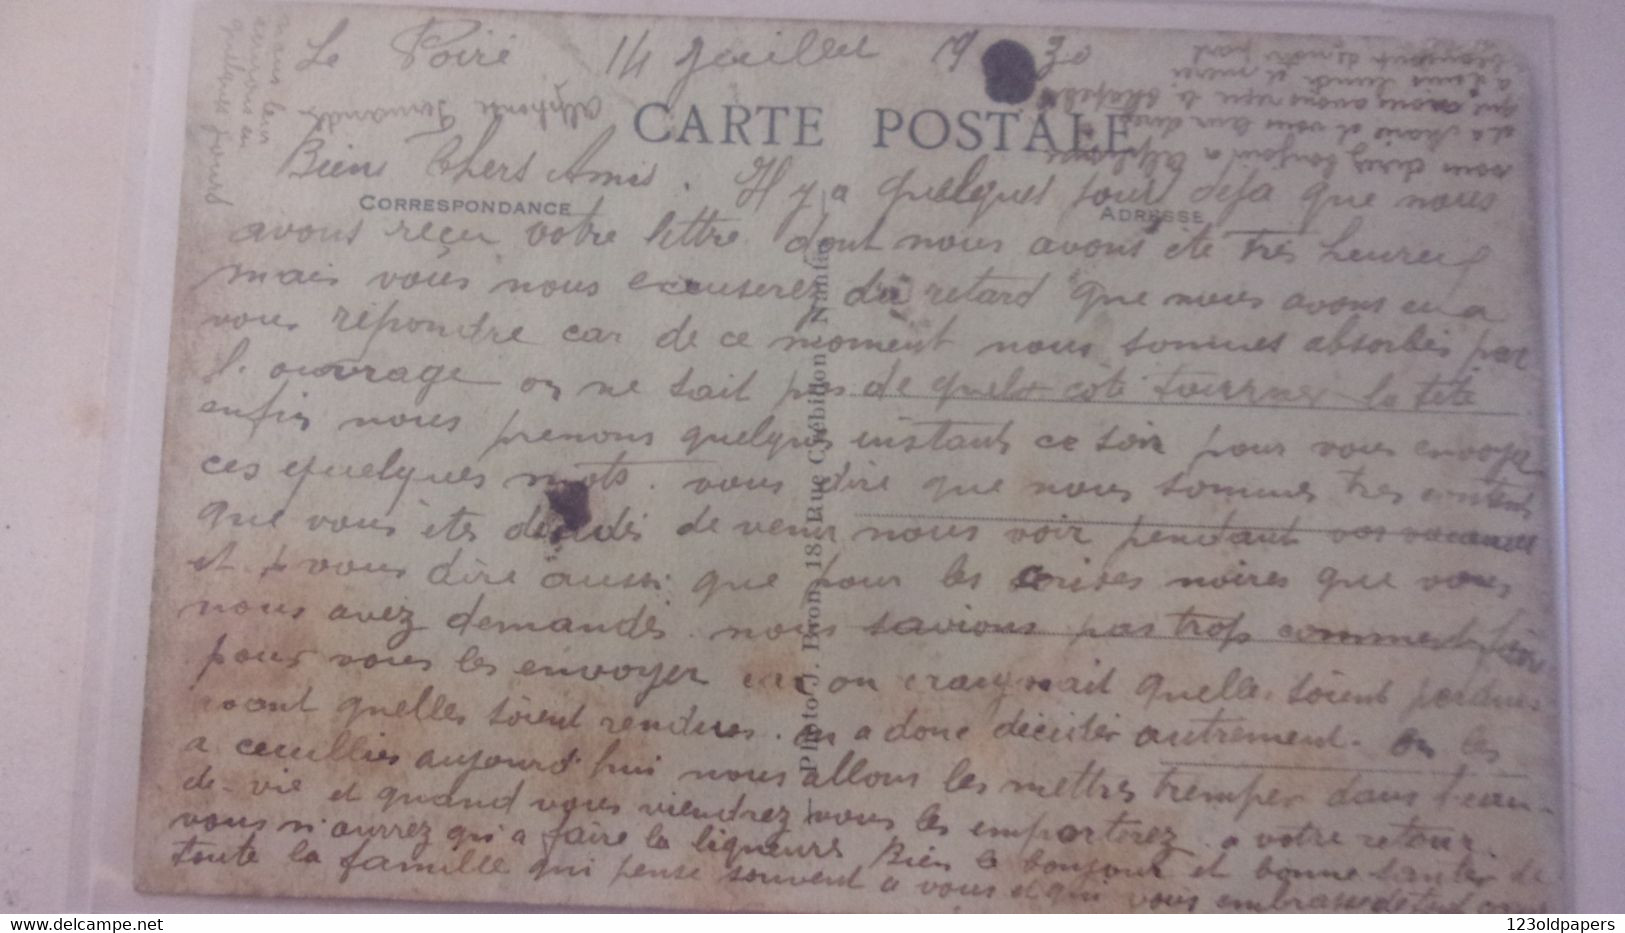 Le Poiré 14 Juillet 1930
CARTE POSTALE
Bien Chers Amis. Il y a quelques jour deja que nous
CORRESPONDANCE
ADRESSE
avons reçu votre lettre dont nous avons été très heureux
mais vous nous excuserez du retard que nous avons eu a
vous répondre car de ce moment nous sommes absorbés par
l'ouvrage on ne sait pas de quel coté tourner la tete
enfin nous prenons quelques instants ce soir pour vous envoyer
ces quelques mots. vous dire que nous sommes tres contents
que vous ètes décidés de venir nous voir pendant vos vacances
et vous dire aussi que pour les cerises noires que vous
nous avez demandés. nous savions pas trop comment faire
pour vous les envoyer car on craignait quelles soient perdues
avant quelles soient rendues. on a donc décider autrement. on les
a cueillies aujourd'hui nous allons les mettres tremper dans l'eau-
de-vie et quand vous viendrez vous les emporterez a votre retour.
vous n'aurrez qu'a faire la liqueurs Bien le bonjour et bonne santer de
toute la famille qui pense souvent a vous et qui vous embrasse de tout coeur
Alphonse Fernande
nous leur
ecrivons en
quelques jours
vous direz bonjour a Alphonse
et a Marie et vous leur direz
que nous avons reçu le chapelet
a Louis lundi et merci
de notre part
Photo J. Bron, 18, Rue Crébillon, Nantes
123oldpapers